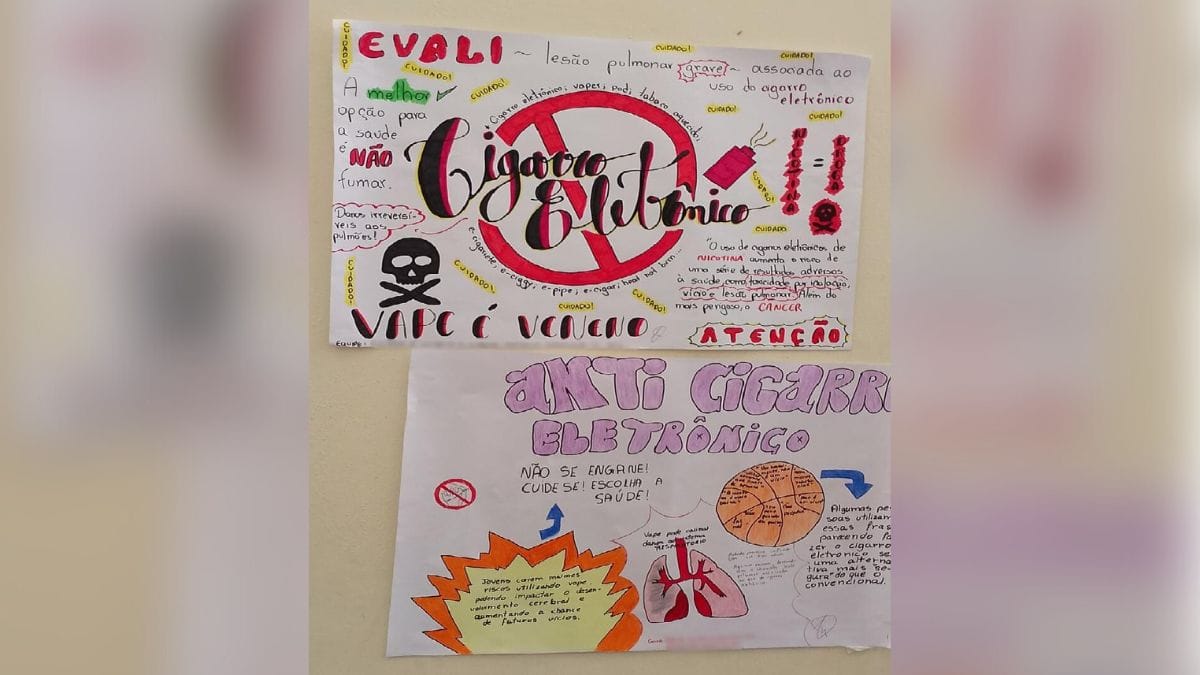 CUIDADO!
EVALI ~ lesão pulmonar grave ~ associada ao
uso do cigarro
eletrônico
CUIDADO!
CUIDADO!
CUIDADO!
CUIDADO!
CUIDADO!
CUIDADO!
A melhor
opção para
a saúde
é
NÃO
fumar.
Cigarro eletrônico; vaper; pod; tabaco aquecido;
Cigarro
Eletrônico
e-cigarrete; e-ciggy; e-pipe; e-cigar; heat not burn...
NICOTINA = DROGA
CUIDADO!
CUIDADO
Danos irreversí-
veis aos
pulmões!
"O uso de cigarros eletrônicos de
NICOTINA aumenta o risco de
uma série de resultados adversos
à saúde, como toxicidade por inalação,
vício e lesão pulmonar." Além do
mais perigoso, o CANCER
CUIDADO!
CUIDADO!
CUIDADO!
CUIDADO!
VAPE É VENENO
ATENÇÃO
EQUIPE:
ANTI CIGARR
ELETRÔNIÇO
NÃO SE ENGANE!
CUIDE-SE! ESCOLHA A
SAÚDE!
Jovens correm maiores
riscos utilizando vape,
podendo impactar o desen-
volvimento cerebral e
aumentando a chance
de futuros vícios.
Vape pode causar
RESPIRATÓRIO
Algumas pes
soas utilizam
essas fras
parecendo fa
zer o cigarro
eletrônico se
uma alterna
tiva mais se-
gura do que o
convencional.